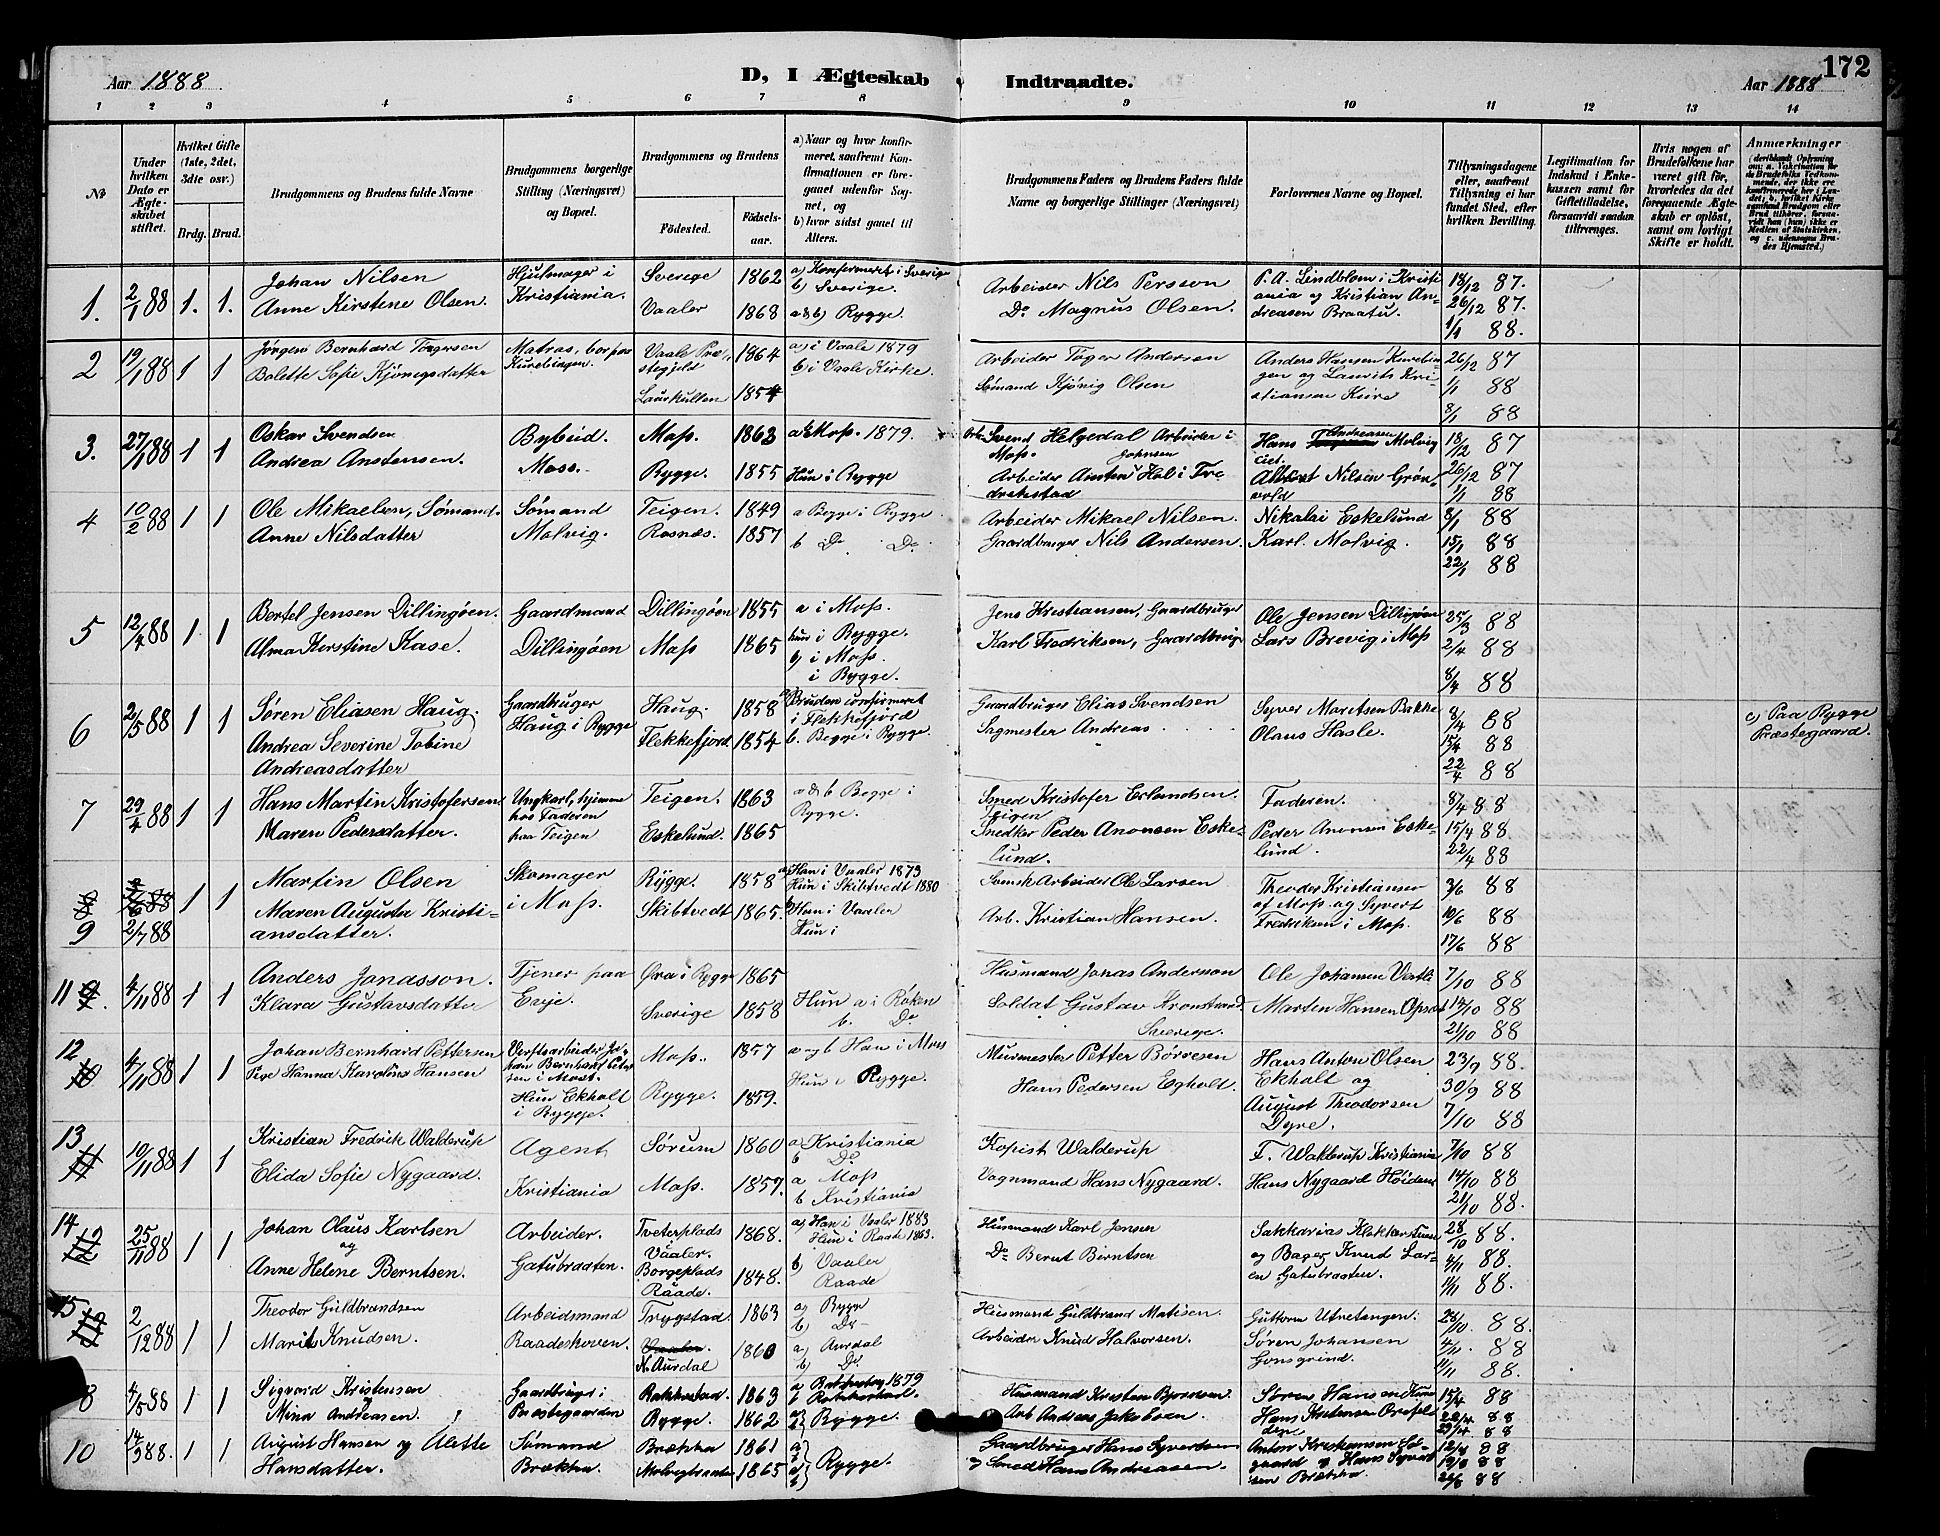 172
Aar 1888. D, I Ægteskab Indtraadte. Aar 1888
1 2 3 4 5 6 7 8 9 10 11 12 13 14
№
Under hvilken Dato er Ægteskabet stiftet.
Hvilket Gifte (1ste, 2det, 3dte osv.)
Brdg. Brud.
Brudgommens og Brudens fulde Navne
Brudgommens borgerlige Stilling (Næringsvei) og Bopæl.
Brudgommens og Brudens
Födested. Födsels-aar.
a) Naar og hvor konfirmeret, saafremt Konfirmationen er foregaaet udenfor Sognet, og
b) hvor sidst gaaet til Alters.
Brudgommens Faders og Brudens Faders fulde Navne og borgerlige Stillinger (Næringsvei)
Forlovernes Navne og Bopæl.
Tillysningsdagene eller, saafremt Tillysning ei har fundet Sted, efter hvilken Bevilling.
Legitimation for Indskud i Enkekassen samt for Giftetilladelse, forsaavidt saadan tiltrænges.
Hvis nogen af Brudefolkene har været gift før, hvorledes da det foregaaende Ægteskab er opløst, samt om lovligt Skifte er holdt.
Anmærkninger
1. 2/1 88 1. 1. Johan Nilsen Hjulmager i Sverige 1862 a) Konfirmeret i Sverige Arbeider Nils Persson P.A. Lindblom i Kristi 18/12 87.
Anne Kirstine Olsen. Kristiania. b) Sverige. ania og Kristian An-
Vaaler 1868 a & b) Rygge. Do Magnus Olsen. dreasen Braatu. 26/12 87.
1/1 88.
2 19/1 88 1 1 Jørgen Bernhard Tørgersen Matras, bor paa Vaale Præ- 1864 a) i Vaale 1879 Arbeider Tøger Andersen Anders Hansen 26/12 87
Bolette Sofie Kjønigsdatter stegjeld b) i Vaale Kirke. Sømand Kjønig Olsen gen og Lauvits Kri 1/1 88
Laurkullen 1854 stiansen Kure 8/1 88
3. 27/1 88 1 1 Oskar Svendsen Bybud. Moss. 1863 a & b Moss. 1879. Svend Helgedal Arbeider i Hans Andreasen Molvig 18/12 87
Andrea Anstensen. Moss. Rygge. 1855 Hun i Rygge Moss. Johnsen 26/12 87
Arbeider Ansten Hol i Fre- Albert Nilsen Grøn- 1/1 88
drikstad vold
4 10/2 88 1 1 Ole Mikaelsen, Sømand. Sømand Teigen. 1849 a Begge i Rygge Arbeider Mikael Nilsen. Nikolai Eskelund 8/1 88
Anne Nilsdatter Molvig. Rosnæs. 1857 b Do Do Gaardbruger Nils Andersen. Karl. Molvig. 15/1 88
22/1 88
5 12/4 88 1 1 Bertel Jensen Dillingøen. Gaardmand Dillingøen 1855 a i Moss. Jens Kristiansen, Gaardbruger Ole Jensen Dillingøen 25/3 88
Alma Kirstine Kase. Dillingøen Moss 1865 hun i Rygge. Karl Fredriksen, Gaardbruger Lars Brevig i Moss 2/4 88
b) i Moss.
i Rygge. 8/4 88
6 2/5 88 1 1 Søren Eliasen Haug. Gaardbruger Haug. 1858 Bruden confirmeret Gaardbruger Elias Svendsen Syver Moritsen Bakke 8/4 88 c) Paa Rygge
Andrea Severine Tobine Haug i Rygge Flekkefjord 1854 i Flekkefjord Sagmester Andreas Olaus Hasle. 15/4 88 Præstegaard.
Andreasdatter b. Begge i Rygge. 22/4 88
7 29/4 88 1 1 Hans Martin Kristofersen Ungkarl, hjemme Teigen. 1863 a & b Begge i Smed Kristofer Erlandsen. Faderen. 8/4 88
hos Faderen Rygge. Teigen
Maren Pedersdatter. paa Teigen Eskelund. 1865 Snedker Peder Anonsen Eske- Peder Anonsen Eske- 15/4 88
lund. lund. 22/4 88
9 2/7 88 1 1 Martin Olsen Skomager Rygge. 1858 Han i Vaaler 1873 Svensk Arbeider Ole Larsen Theodor Kristiansen 3/6 88
Hun i Skibtvedt 1880 af Moss og Syvert
Maren Augusta Kristi- i Moss. Skibtvedt 1865. Han i Vaaler Arb. Kristian Hansen. Fredriksen i Moss. 10/6 88
ansdatter. Hun i 17/6 88
11 4/11 88 1 1 Anders Jonasson. Tjener paa Øra i Rygge 1865 Husmand Jonas Anderson Ole Johansen Vestli 7/10 88
Klara Gustavsdatter Evje. Sverige 1858 Hun a i Røken Soldat Gustav Kronstrand. Martin Hansen Opsal 14/10 88
b. Do Sverige. 21/10 88
12 4/11 88 1 1 Johan Bernhard Pettersen Verftsarbeider Jo- Moss. 1857 a og b Han i Moss Murmester Petter Börresen Hans Anton Olsen 23/9 88.
Pige Hanna Karoline Hansen han Bernhard Petter- Hun i Rygge. Hans Pedersen Egholt. Ekholt og 30/9 88
sen i Moss.
Hun Ekholt Rygge. 1859. August Theodorsen 7/10 88
i Rygge. Dyre.
13 10/11 88 1 1 Kristian Fredrik Walderup Agent Sørum 1860 a Kristiania Kopist Walderup F. Walderup Kristiania 7/10 88
b Do
Elida Sofie Nygaard. Kristiania Moss. 1857. a Moss Vognmand Hans Nygaard. Hans Nygaard Høiden 14/10 88
b Kristiania 21/10 88.
14 25/11 88 1 1 Johan Olaus Karlsen Arbeider. Tveterplads 1868. a) Han i Vaaler 1883 Husmand Karl Jensen Sakkarias Klokkerstuen 28/10 88.
og Vaaler. Hun i Raade 1863.
Anne Helene Berntsen. Gatubraaten. Borgeplads 1848. b) Vaaler Do Bernt Berntsen og Bager Knud Lar- 4/11 88.
Raade. Raade en Gatubraaten. 11/11 88.
15 2/12 88 1 1 Theodor Guldbrandsen Arbeidsmand Trygstad. 1863 a) Rygge Husmand Guldbrand Matisen. Guttorm Utnetangen. 28/10. 88.
b) Do
Marit Knudsen. Raadeshoven. Vaaler. 1860 a) Aurdal Arbeider Knud Halvorsen. Søren Johansen 4/11. 88.
N. Aurdal b) Do Gonsgrind. 11/11 88.
8 4/5 88 1 1 Sigvard Kristensen Gaardbruger i Rakkestad. 1863 a Rakkestad 1879 Husmand Kristen Bjørnsen. Søren Hansen 15/4 88
b Rakkestad.
Mina Andreasen. Præstegaarden Rygge. 1862 a) b) Rygge. Arb Andreas Jakobsen. Hans Kristensen 22/4 88
29/4 88
10 14/9 88. 1 1 August Hansen og Alette Sømand Brækka 1861 a) b) Gaardbruger Hans Syvertsen Anton Kristiansen Sø- 12/8 88
Hansdatter. Brækka. Molvigbraaten 1865 a) b) Rygge. og Smed Hans Andreasen. gaard og Hans Syvert 19/8 88
sen Brækka. 26/8 88